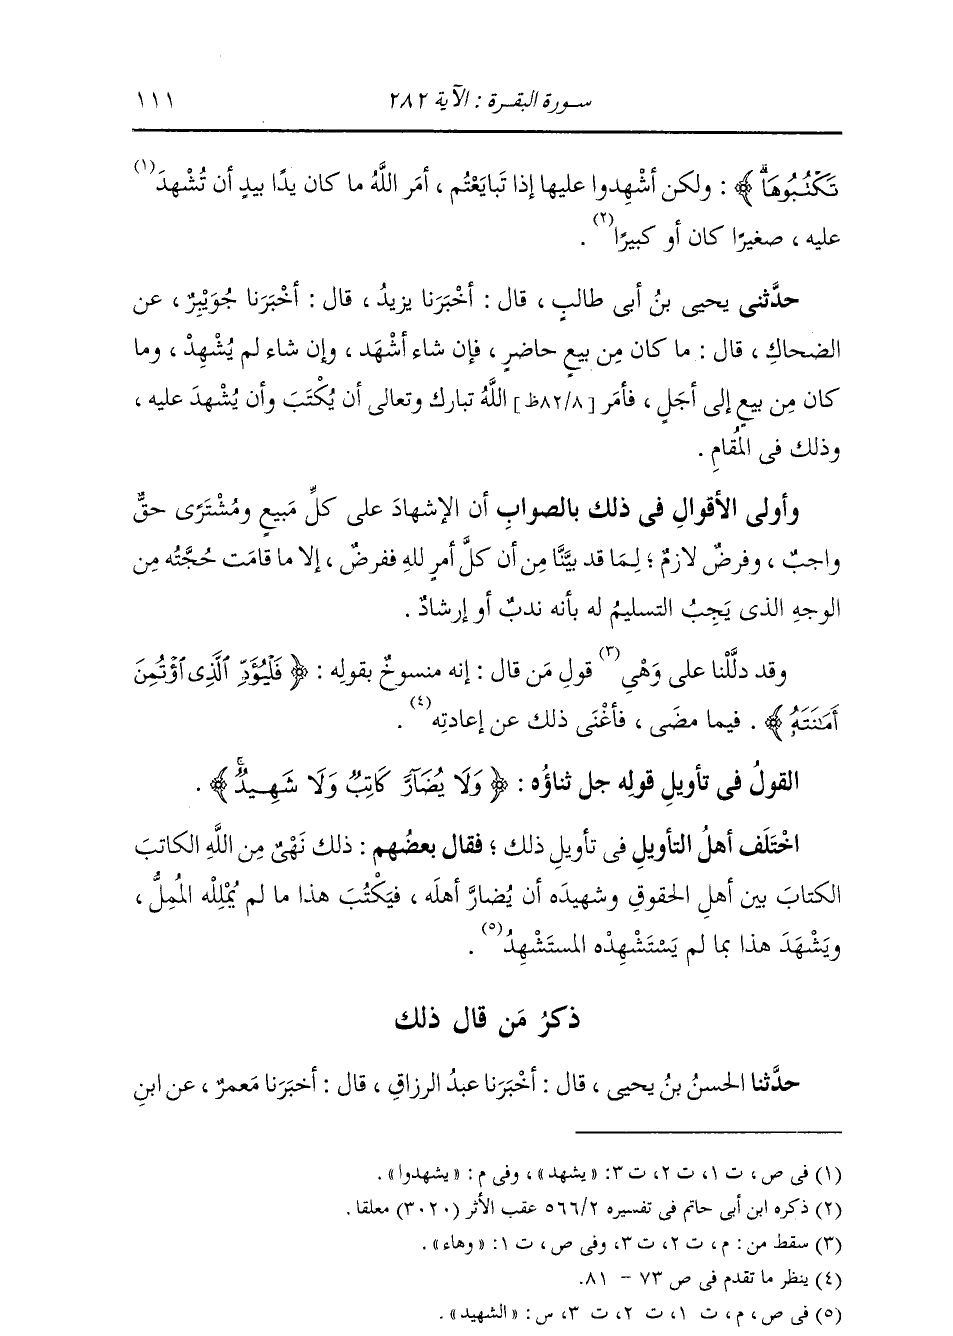 سورة البقرة : الآية ٢٨٢ ١١١
تَكْتُبُوهَا ﴾ : ولكن أشْهِدوا عليها إذا تَبايَعْتُم ، أمَر اللَّهُ ما كان يدًا بيدٍ أن تُشْهِدَ(١)
عليه ، صغيرًا كان أو كبيرًا(٢) .
حدَّثنى يحيى بنُ أبى طالبٍ ، قال : أخْبَرَنا يزيدُ ، قال : أخْبَرَنا جُوَيْبِرٌ ، عن
الضحاكِ ، قال : ما كان مِن بيعٍ حاضرٍ ، فإن شاء أشْهَد ، وإن شاء لم يُشْهِدْ ، وما
كان مِن بيعٍ إلى أجَلٍ ، فأمَر [٨٢/٨ظ] اللَّهُ تبارك وتعالى أن يُكْتَبَ وأن يُشْهِدَ عليه ،
وذلك فى المُقامِ .
وأولى الأقوالِ فى ذلك بالصوابِ أن الإشهادَ على كلِّ مَبيعٍ ومُشْتَرًى حقٌّ
واجبٌ ، وفرضٌ لازمٌ ؛ لِمَا قد بيَّنَّا مِن أن كلَّ أمرٍ للهِ ففرضٌ ، إلا ما قامَت حُجَّتُه مِن
الوجهِ الذى يَجِبُ التسليمُ له بأنه ندبٌ أو إرشادٌ .
وقد دلَّلْنا على وَهْيِ(٣) قولِ مَن قال : إنه منسوخٌ بقولِه : ﴿ فَلْيُؤَدِّ ٱلَّذِى ٱؤْتُمِنَ
أَمَٰنَتَهُۥ ﴾ . فيما مضَى ، فأغْنَى ذلك عن إعادتِه(٤) .
القولُ فى تأويلِ قولِه جل ثناؤُه : ﴿ وَلَا يُضَآرَّ كَاتِبٌ وَلَا شَهِيدٌ ﴾ .
اخْتَلَف أهلُ التأويلِ فى تأويلِ ذلك ؛ فقال بعضُهم : ذلك نَهْىٌ مِن اللَّهِ الكاتبَ
الكتابَ بين أهلِ الحقوقِ وشهيدَه أن يُضارَّ أهلَه ، فيَكْتُبَ هذا ما لم يُمْلِلْه المُمِلُّ ،
ويَشْهَدَ هذا بما لم يَسْتَشْهِدْه المستَشْهِدُ(٥) .
ذكرُ مَن قال ذلك
حدَّثنا الحسنُ بنُ يحيى ، قال : أخْبَرَنا عبدُ الرزاقِ ، قال : أخبَرَنا مَعمرٌ ، عن ابنِ
(١) فى ص ، ت ١، ت ٢، ت ٣: «يشهد» ، وفى م : «يشهدوا» .
(٢) ذكره ابن أبى حاتم فى تفسيره ٥٦٦/٢ عقب الأثر (٣٠٢٠) معلقا .
(٣) سقط من : م ، ت ٢، ت ٣، وفى ص ، ت ١: «وهاء» .
(٤) ينظر ما تقدم فى ص ٧٣ - ٨١.
(٥) فى ص ، م ، ت ١، ت ٢، ت ٣، س : «الشهيد» .